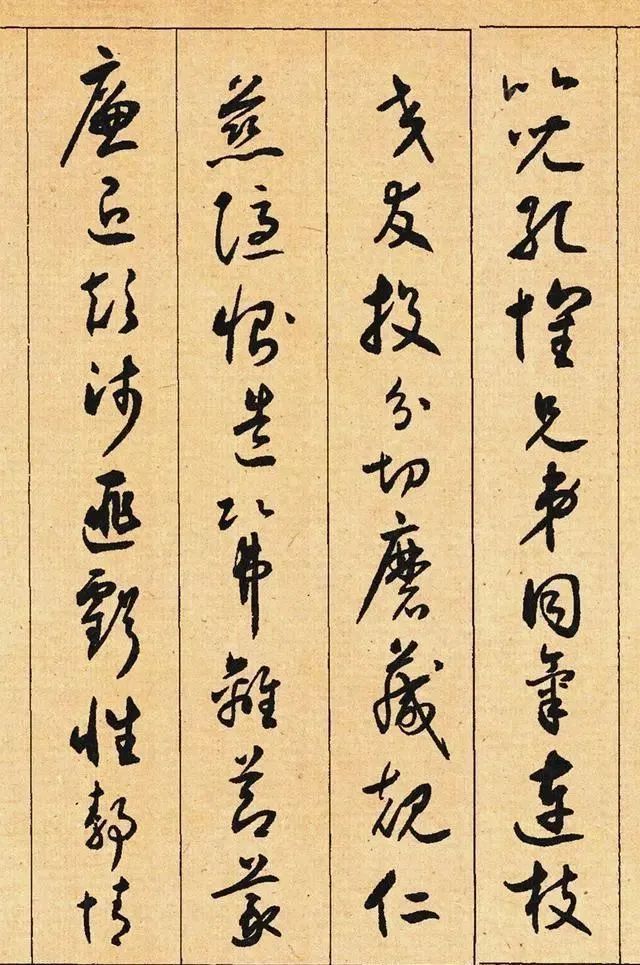 比兒孔懷兄弟同氣連枝
交友投分切磨箴規仁
慈隱惻造次弗離節義
廉退顛沛匪虧性靜情